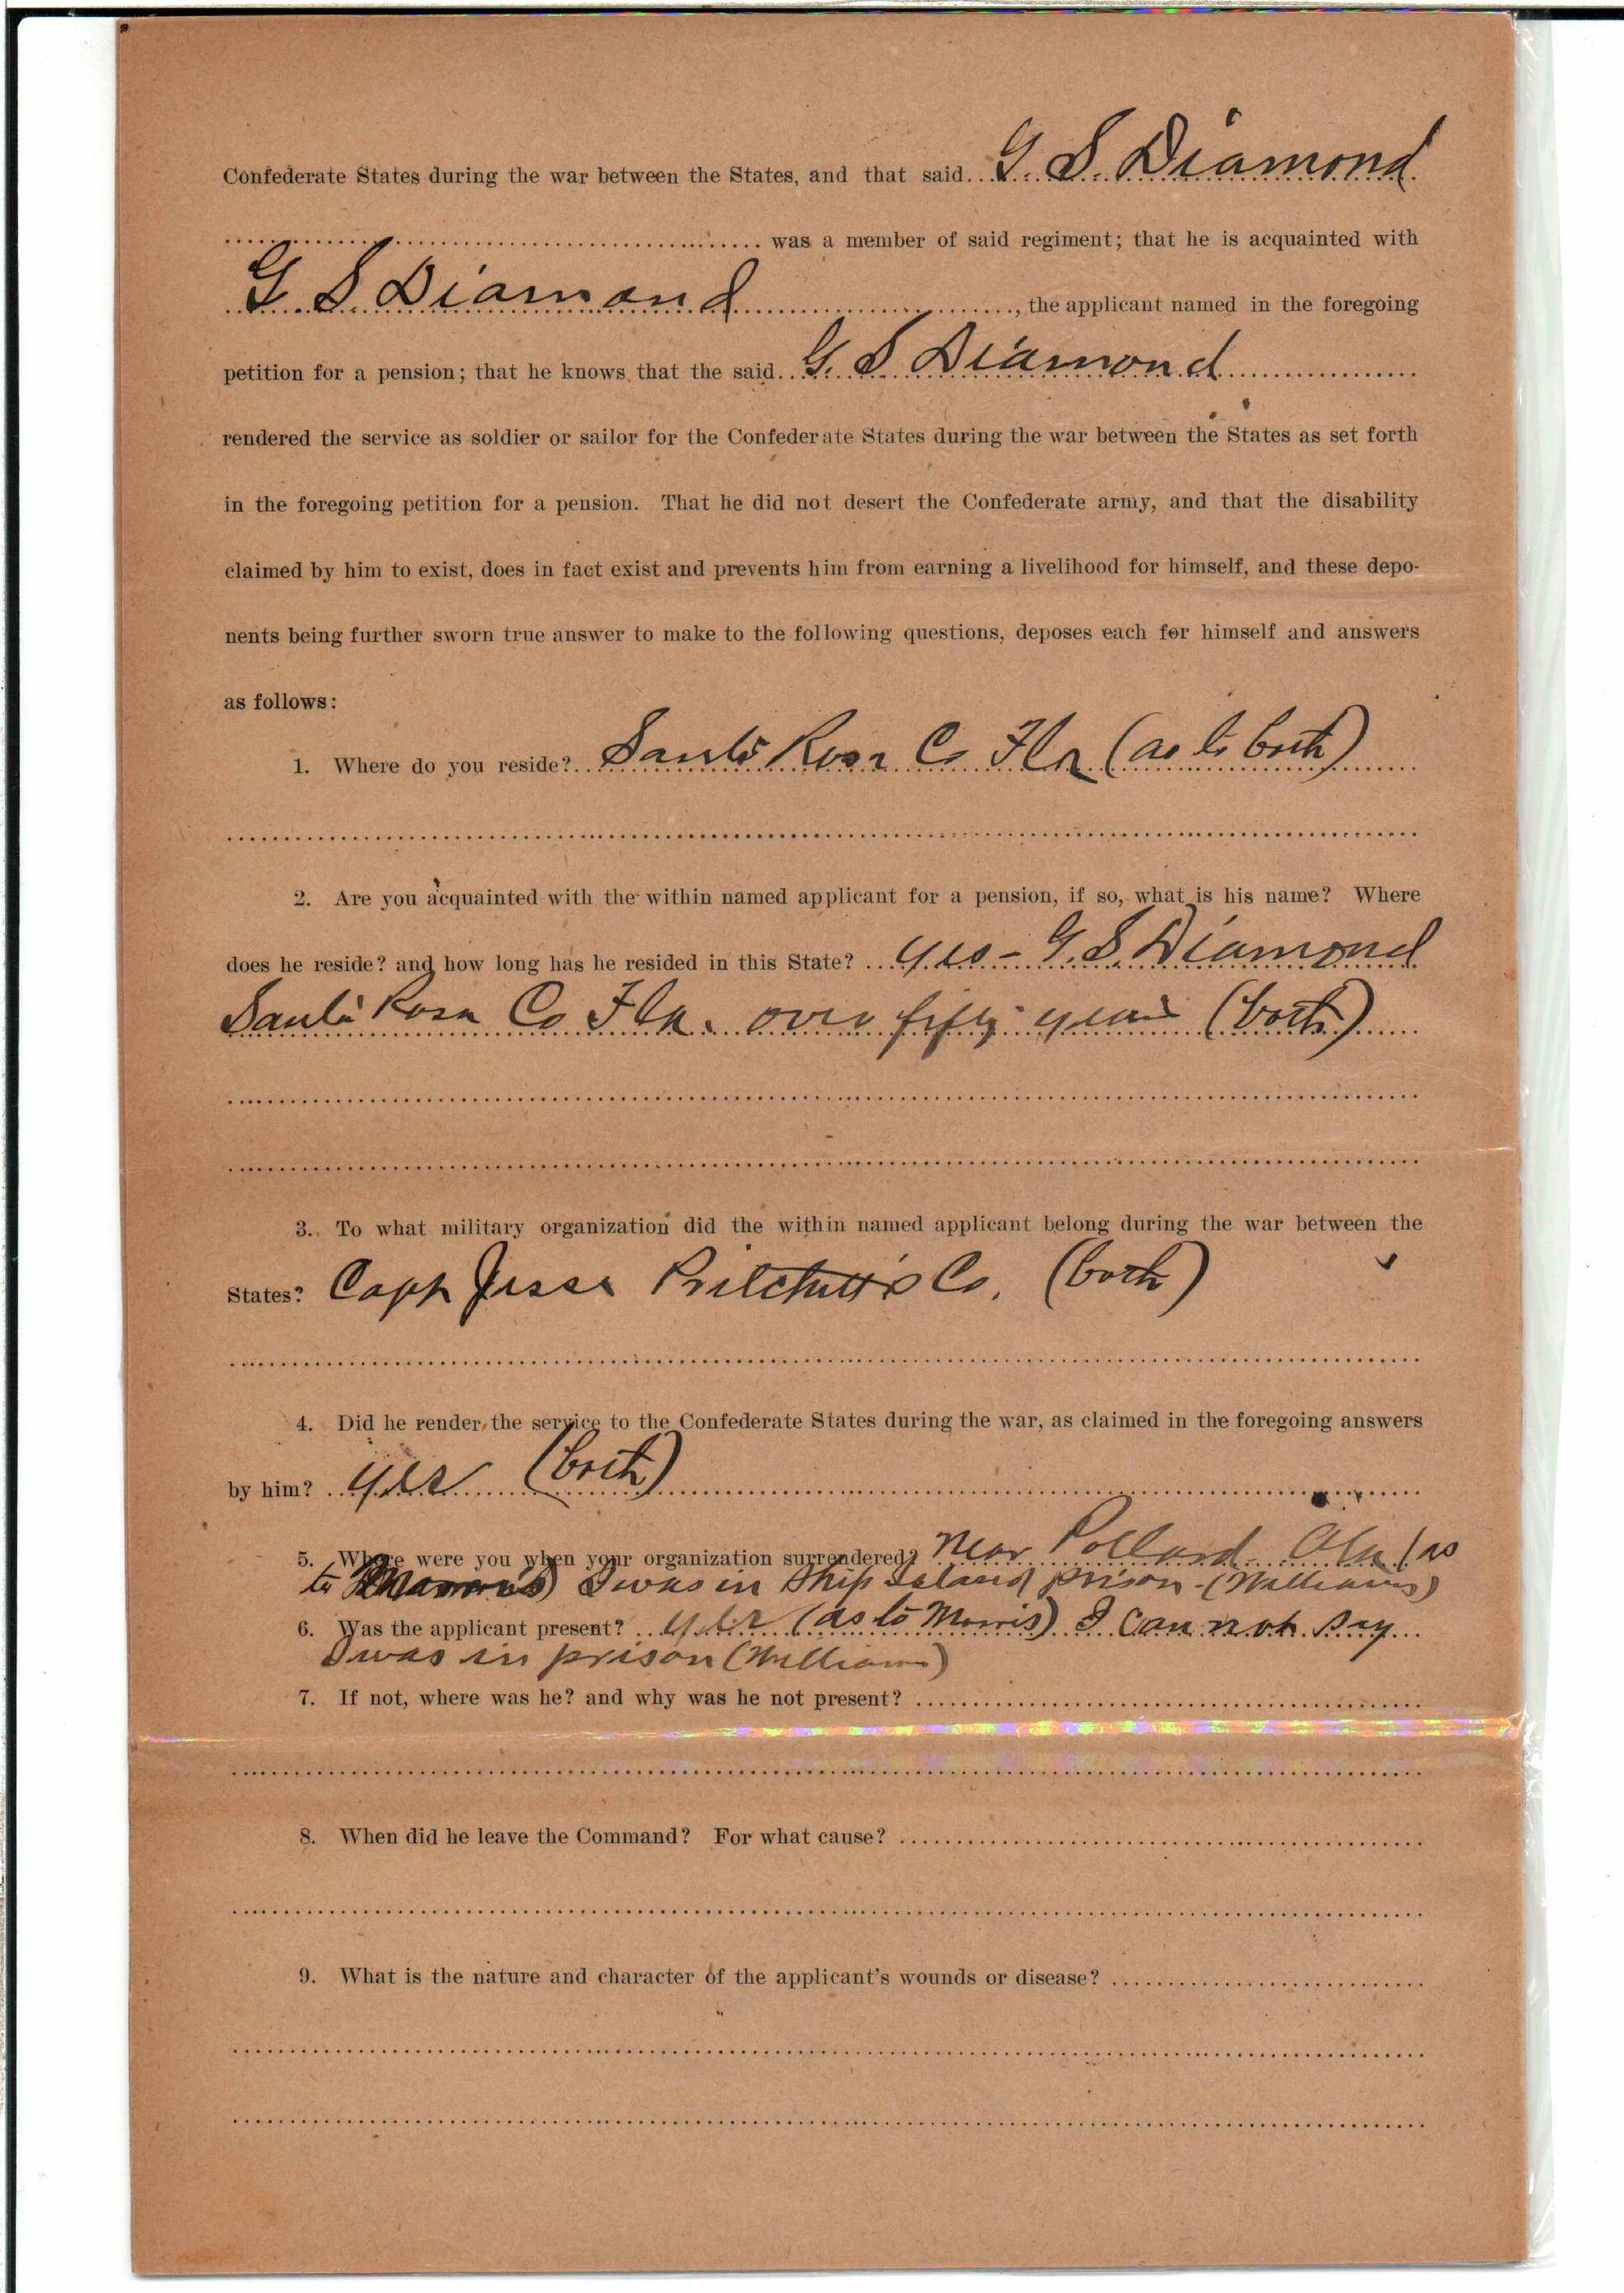 Confederate States during the war between the States, and that said G. S. Diamond
was a member of said regiment; that he is acquainted with
G. S. Diamond, the applicant named in the foregoing
petition for a pension; that he knows that the said G. S Diamond
rendered the service as soldier or sailor for the Confederate States during the war between the States as set forth
in the foregoing petition for a pension. That he did not desert the Confederate army, and that the disability
claimed by him to exist, does in fact exist and prevents him from earning a livelihood for himself, and these depo-
nents being further sworn true answer to make to the following questions, deposes each for himself and answers
as follows:
1. Where do you reside? Santa Rosa Co Fla (as to both)
2. Are you acquainted with the within named applicant for a pension, if so, what is his name? Where
does he reside? and how long has he resided in this State? yes - G. S. Diamond
Santa Rosa Co Fla. over fifty years (both)
3. To what military organization did the within named applicant belong during the war between the
States? Capt Jesse Pritchett's Co. (both)
4. Did he render the service to the Confederate States during the war, as claimed in the foregoing answers
by him? yes (both)
5. Where were you when your organization surrendered? Near Pollard Ala (as
to Morris) I was in Ship Island prison - (Williams)
6. Was the applicant present? yes (as to Morris) I can not say
I was in prison (Williams)
7. If not, where was he? and why was he not present?
8. When did he leave the Command? For what cause?
9. What is the nature and character of the applicant's wounds or disease?